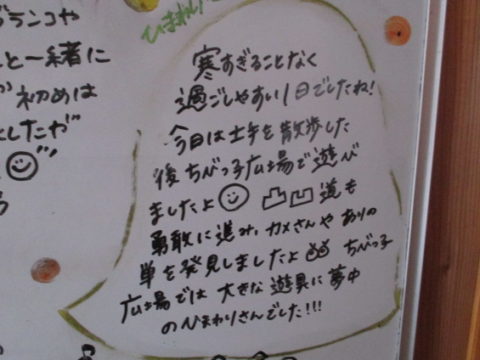 ブランコや
と一緒に
初めは
したが"
ひまわり
寒すぎることなく
過ごしやすい1日でしたね!
今日は土手を散歩した
後ちびっ子広場で遊び
ましたよ☺ 凸凹道も
勇敢に進み、カメさんやありの
巣を発見しましたよ ちびっ子
広場では大きな遊具に夢中
のひまわりさんでした!!!